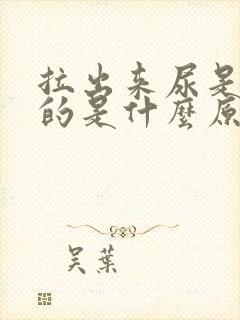 拉出来尿是
的是什麼原
吴葉